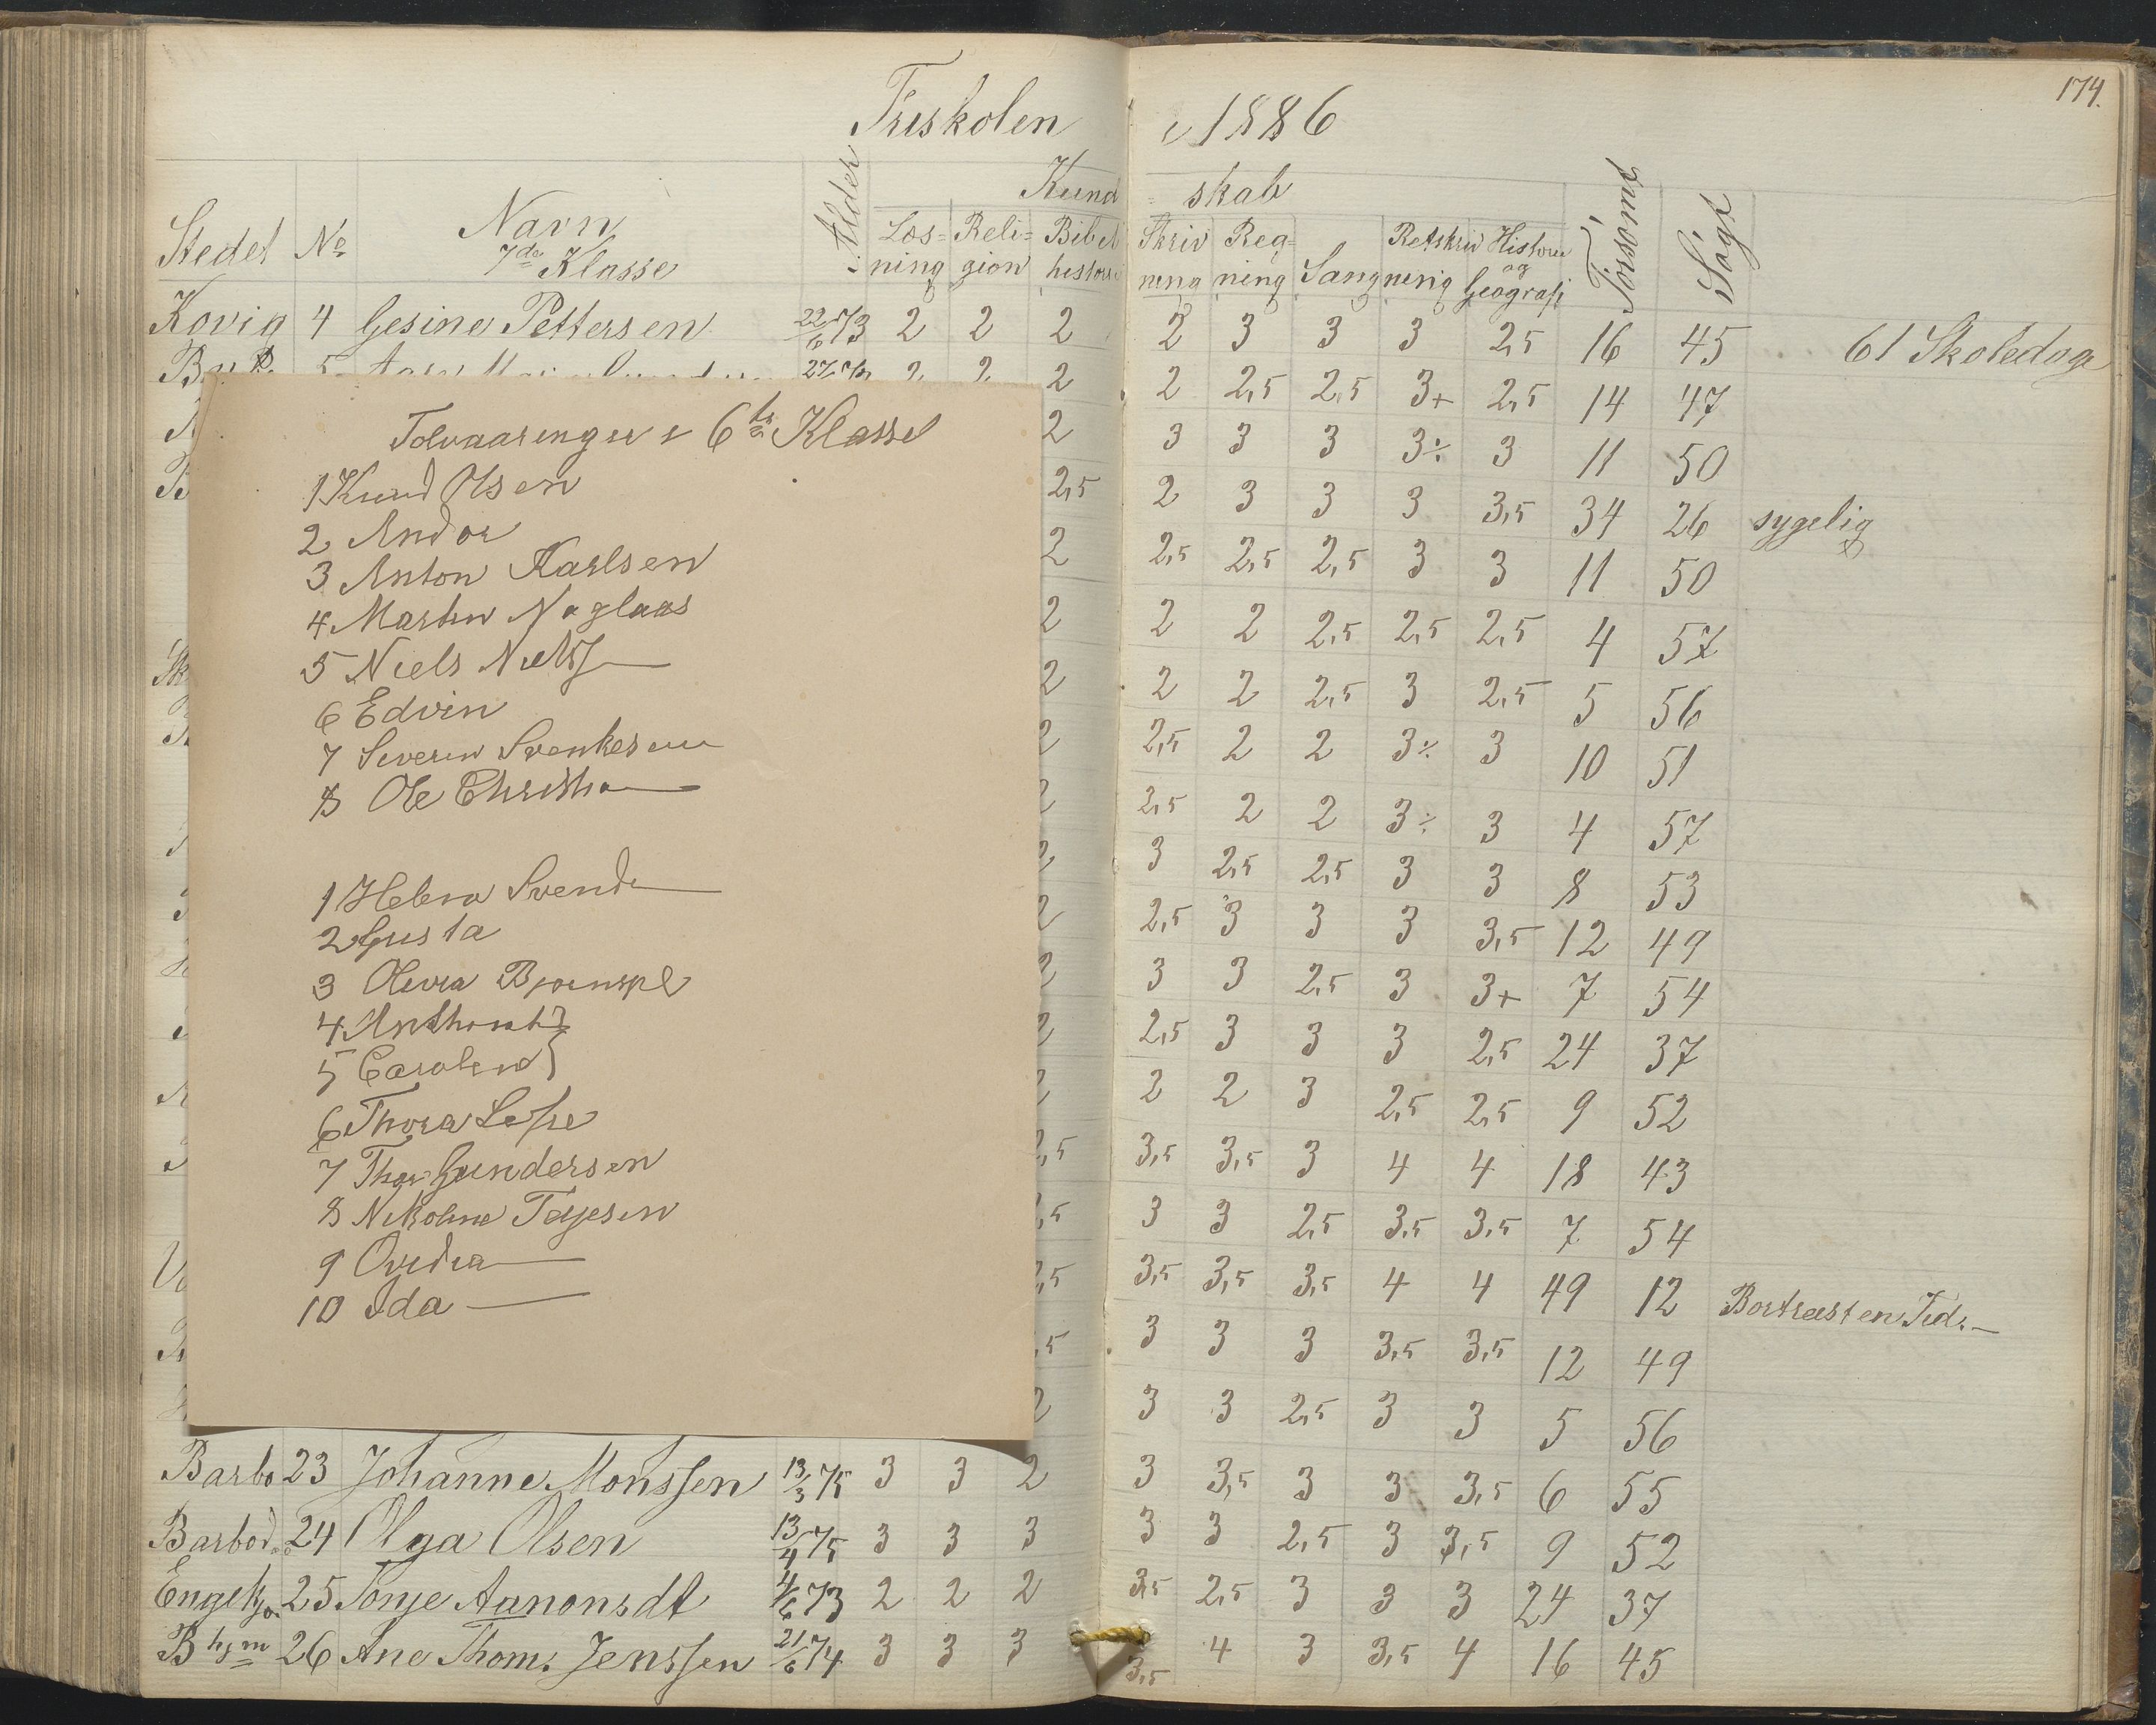 Friskolen i 1886
174.
Kundskab
Stedet No Navn Alder Læs= Reli= Bibel Skriv Reg= Sang Retskriv Historie Forsømt Søgt
7de Klasse ning gion historie ning ning ning og Geografi
Kovig 4 Gesine Pettersen 22/6 73 2 2 2 2 3 3 3 2,5 16 45 61 Skoledage
5 27 2 2 2 2 2,5 2,5 3+ 2,5 14 47
2 3 3 3 3÷ 3 11 50
2,5 2 3 3 3 3,5 34 26 sygelig
2 2,5 2,5 2,5 3 3 11 50
2 2 2 2,5 2,5 2,5 4 57
2 2 2 2,5 3 2,5 5 56
2 2,5 2 2 3÷ 3 10 51
2 2,5 2 2 3÷ 3 4 57
2 3 2,5 2,5 3 3 8 53
2 2,5 3 3 3 3,5 12 49
2 3 3 2,5 3 3+ 7 54
2 2,5 3 3 3 2,5 24 37
2 2 2 3 2,5 2,5 9 52
2,5 3,5 3,5 3 4 4 18 43
2,5 3 3 2,5 3,5 3,5 7 54
2,5 3,5 3,5 3,5 4 4 49 12 Bortreist en Tid.
,5 3 3 3 3,5 3,5 12 49
2 3 3 2,5 3 3 5 56
Barbo 23 Johanne Monssen 13/3 75 3 3 2 3 3,5 3 3 3,5 6 55
Barbo 24 Olga Olsen 13/4 75 3 3 3 3 3 2,5 3 3,5 9 52
25 Tonje Aanonsdt 4/6 73 2 2 2 3,5 2,5 3 3 3 24 37
26 Ane Thom. Jenssen 21/6 74 3 3 3 3,5 4 3 3,5 4 16 45
Tolvaaringer i 6te Klasse
1 Knud Olsen
2 Andor
3 Anton Karlsen
4 Martin Naglaas
5 Niels Niels
6 Edvin
7 Severin Svenkesen
8 Ole Christia
1 Helena Svend
2 Gusta
3 Olevia
4
5 Caroline
6 Thora
7 Thor Gundersen
8 Nikoline Tejesen
9 Ovidia
10 Ida